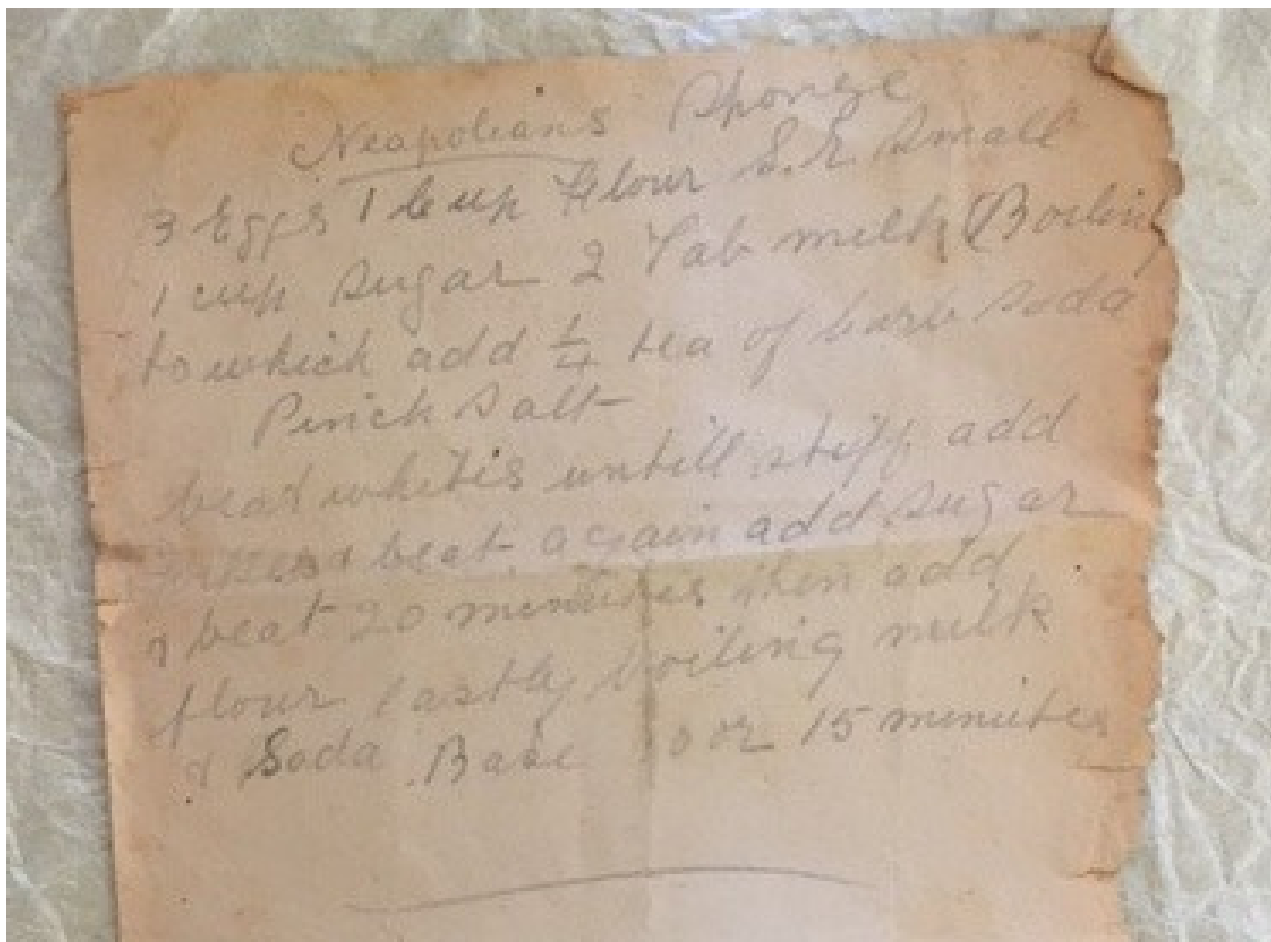 Neapolians Sponge
3 Eggs 1 Cup Flour S.R. Small
1 cup sugar 2 Tab milk (Boiling
to which add 1/4 tea of carb soda
Pinch Salt
beat whites untill stiff add
beat again add sugar
& beat 20 minutes then add
flour lastly boiling milk
& Soda Bake 10 or 15 minutes